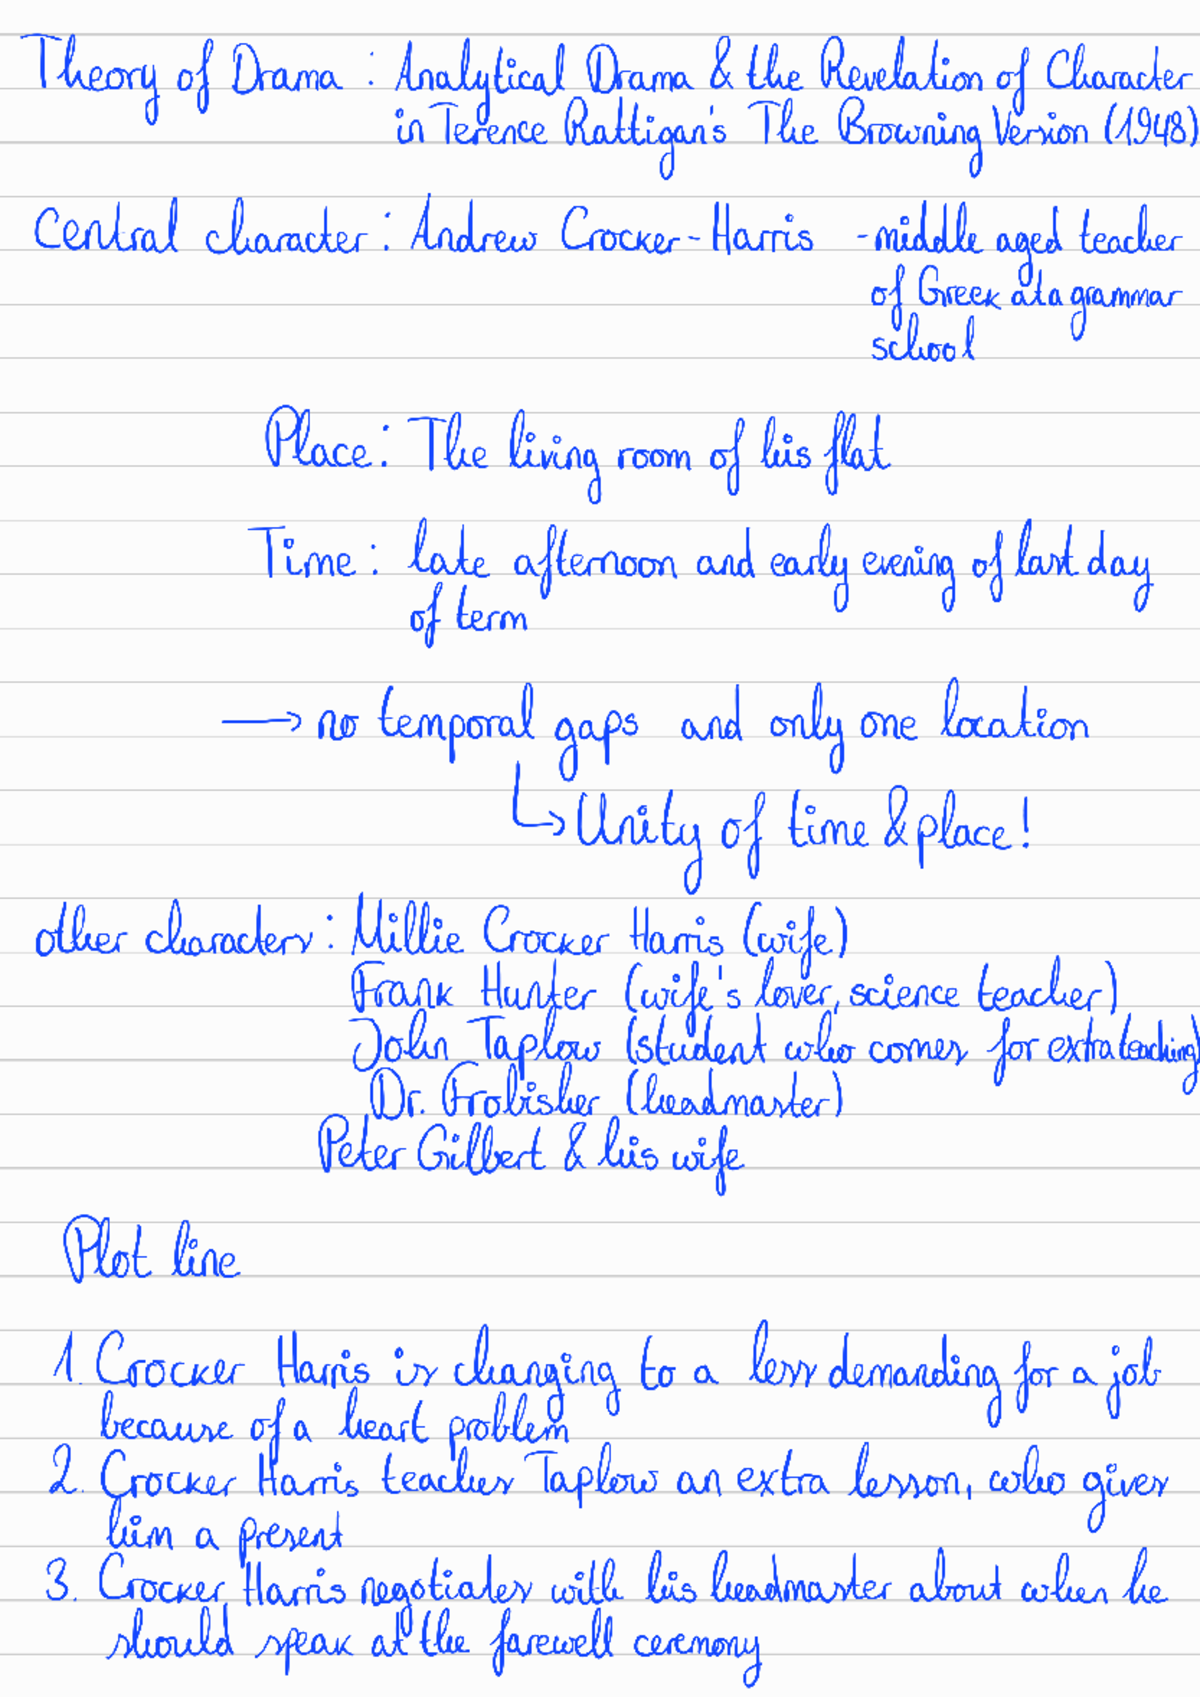 Theory of Drama : Analytical Drama & the Revelation of Character
in Terence Rattigan's The Browning Version (1948)
Central character : Andrew Crocker-Harris - middle aged teacher
of Greek at a grammar
school
Place : The living room of his flat
Time : late afternoon and early evening of last day
of term
→ no temporal gaps and only one location
↳ Unity of time & place!
other characters : Millie Crocker Harris (wife)
Frank Hunter (wife's lover, science teacher)
John Taplow (student who comes for extra teaching)
Dr. Frobisher (headmaster)
Peter Gilbert & his wife
Plot line
1. Crocker Harris is changing to a less demanding for a job
because of a heart problem
2. Crocker Harris teaches Taplow an extra lesson, who gives
him a present
3. Crocker Harris negotiates with his headmaster about when he
should speak at the farewell ceremony